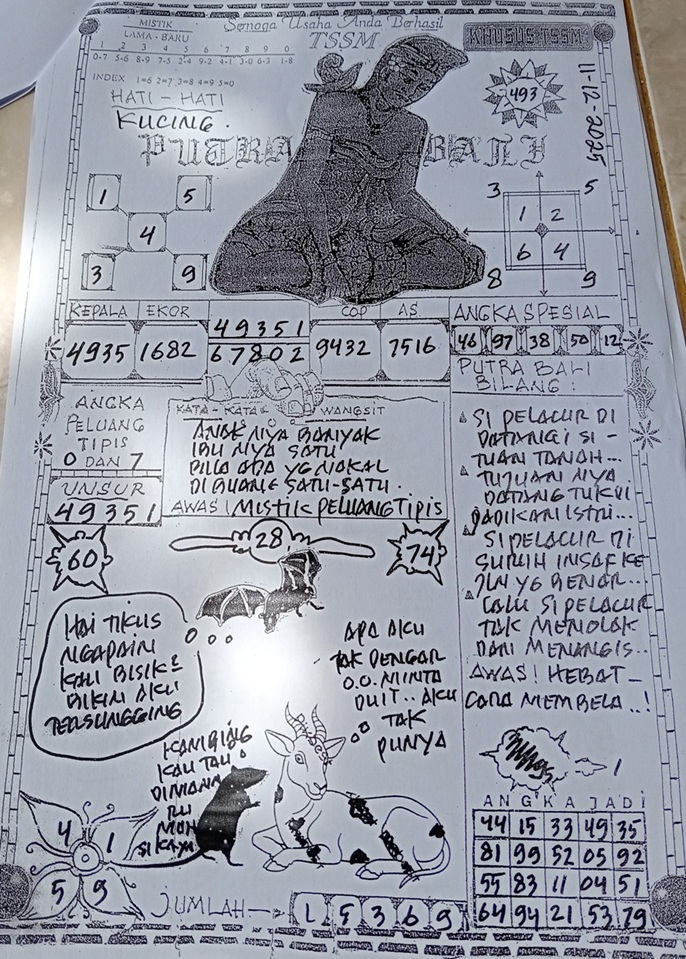 MISTIK
LAMA - BARU
1 2 3 4 5 6 7 8 9 0
0-7 5-6 8-9 7-5 2-4 9-2 4-1 3-0 6-3 1-8
INDEX 1=6 2=7 3=8 4=9 5=0
Semoga Usaha Anda Berhasil
TSSM
KHUSUS TSSM
493
11-12-2025
HATI - HATI
KUCING.
PUTRA BALI
1 5
4
3 9
3 5
1 2
6 4
8 9
KEPALA EKOR COP AS
4935 1682 49351 9432 7516
67802
ANGKA SPESIAL
46 97 38 50 12
ANGKA
PELUANG
TIPIS
0 DAN 7
UNSUR
49351
KATA - KATA WANGSIT
ANAK NYA BANYAK
IBU NYA SATU
BILA ADA YG NAKAL
DI BUANG SATU-SATU.
AWAS! MISTIK PELUANG TIPIS
PUTRA BALI
BILANG :
SI PELACUR DI
DATANGI SI -
TUAN TANAH...
TUJUAN NYA
DATANG TUK
JADIKAN ISTRI...
SI PELACUR
SURUH INSAF KE
JLN YG BENAR...
LALU SI PELACUR
TAK MENOLAK
DAN MENANGIS..
AWAS! HEBAT -
CARA MEMBELA..!
60
28
74
HAI TIKUS
NGAPAIN
KAU BISIK2
BIKIN AKU
TERSUNGGING
APA AKU
TAK DENGAR
O.O. MINTA
DUIT.. AKU
TAK
PUNYA
KAMBING
KAU TAU
DIMANA
RU
MAH
SI KAYA
4 1
5 9
JUMLAH
1 5 3 6 9
1
ANGKA JADI
44 15 33 49 35
81 99 52 05 92
55 83 11 04 51
64 94 21 53 79